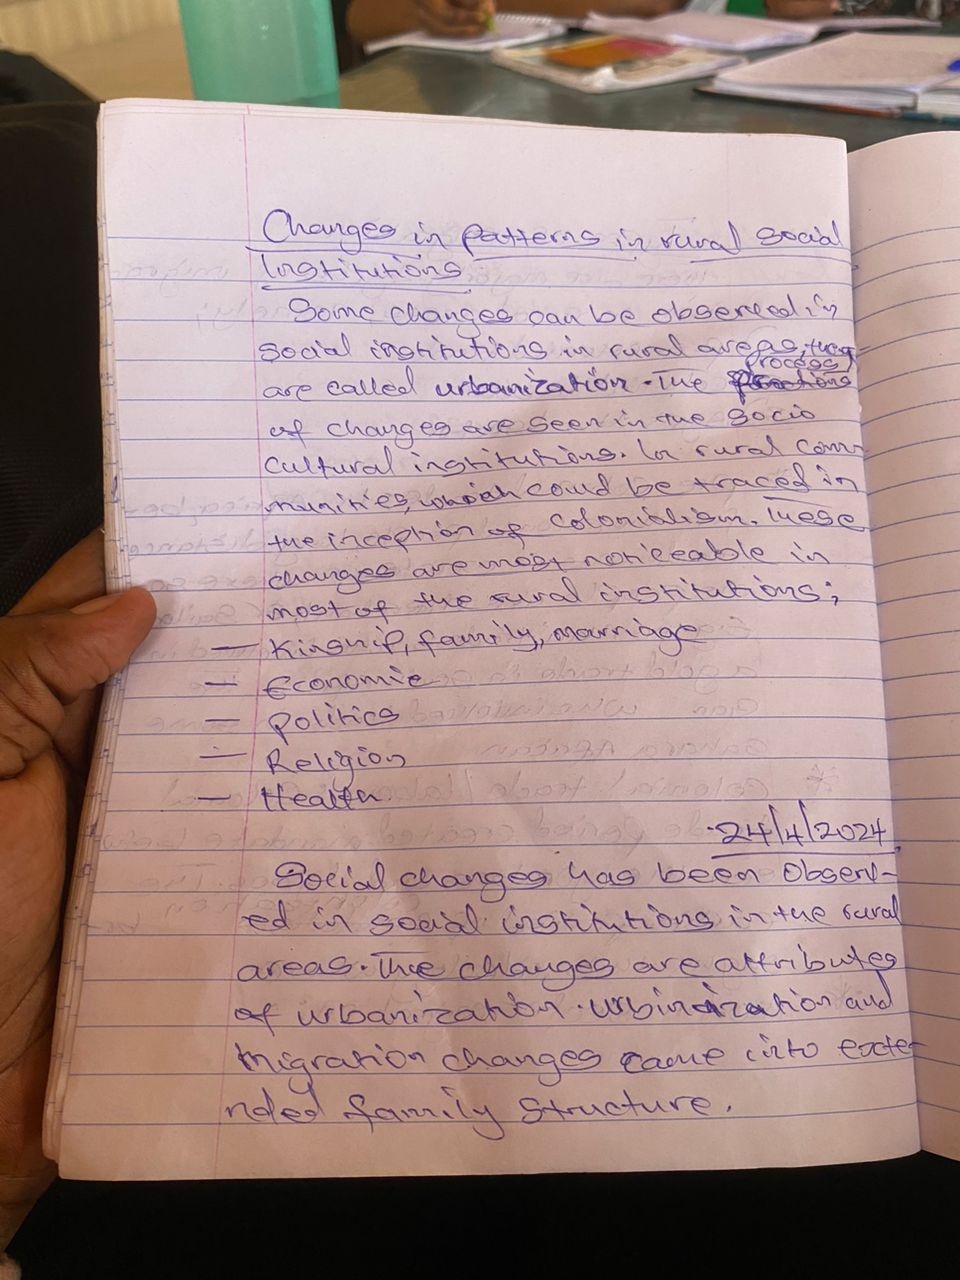 Changes in patterns in rural social
Institutions
Some changes can be observed in
social institutions in rural areas, they
process
are called urbanization. The
of changes are seen in the socio
cultural institutions. In rural com-
munities, which could be traced in
the inception of colonialism. These
changes are most noticeable in
most of the rural institutions;
— Kinship, family, marriage
— Economic
— Politics
— Religion
— Health
24/4/2024
Social changes has been observ-
ed in social institutions in the rural
areas. The changes are attributes
of urbanization. urbinization and
migration changes came into exte-
nded family structure.